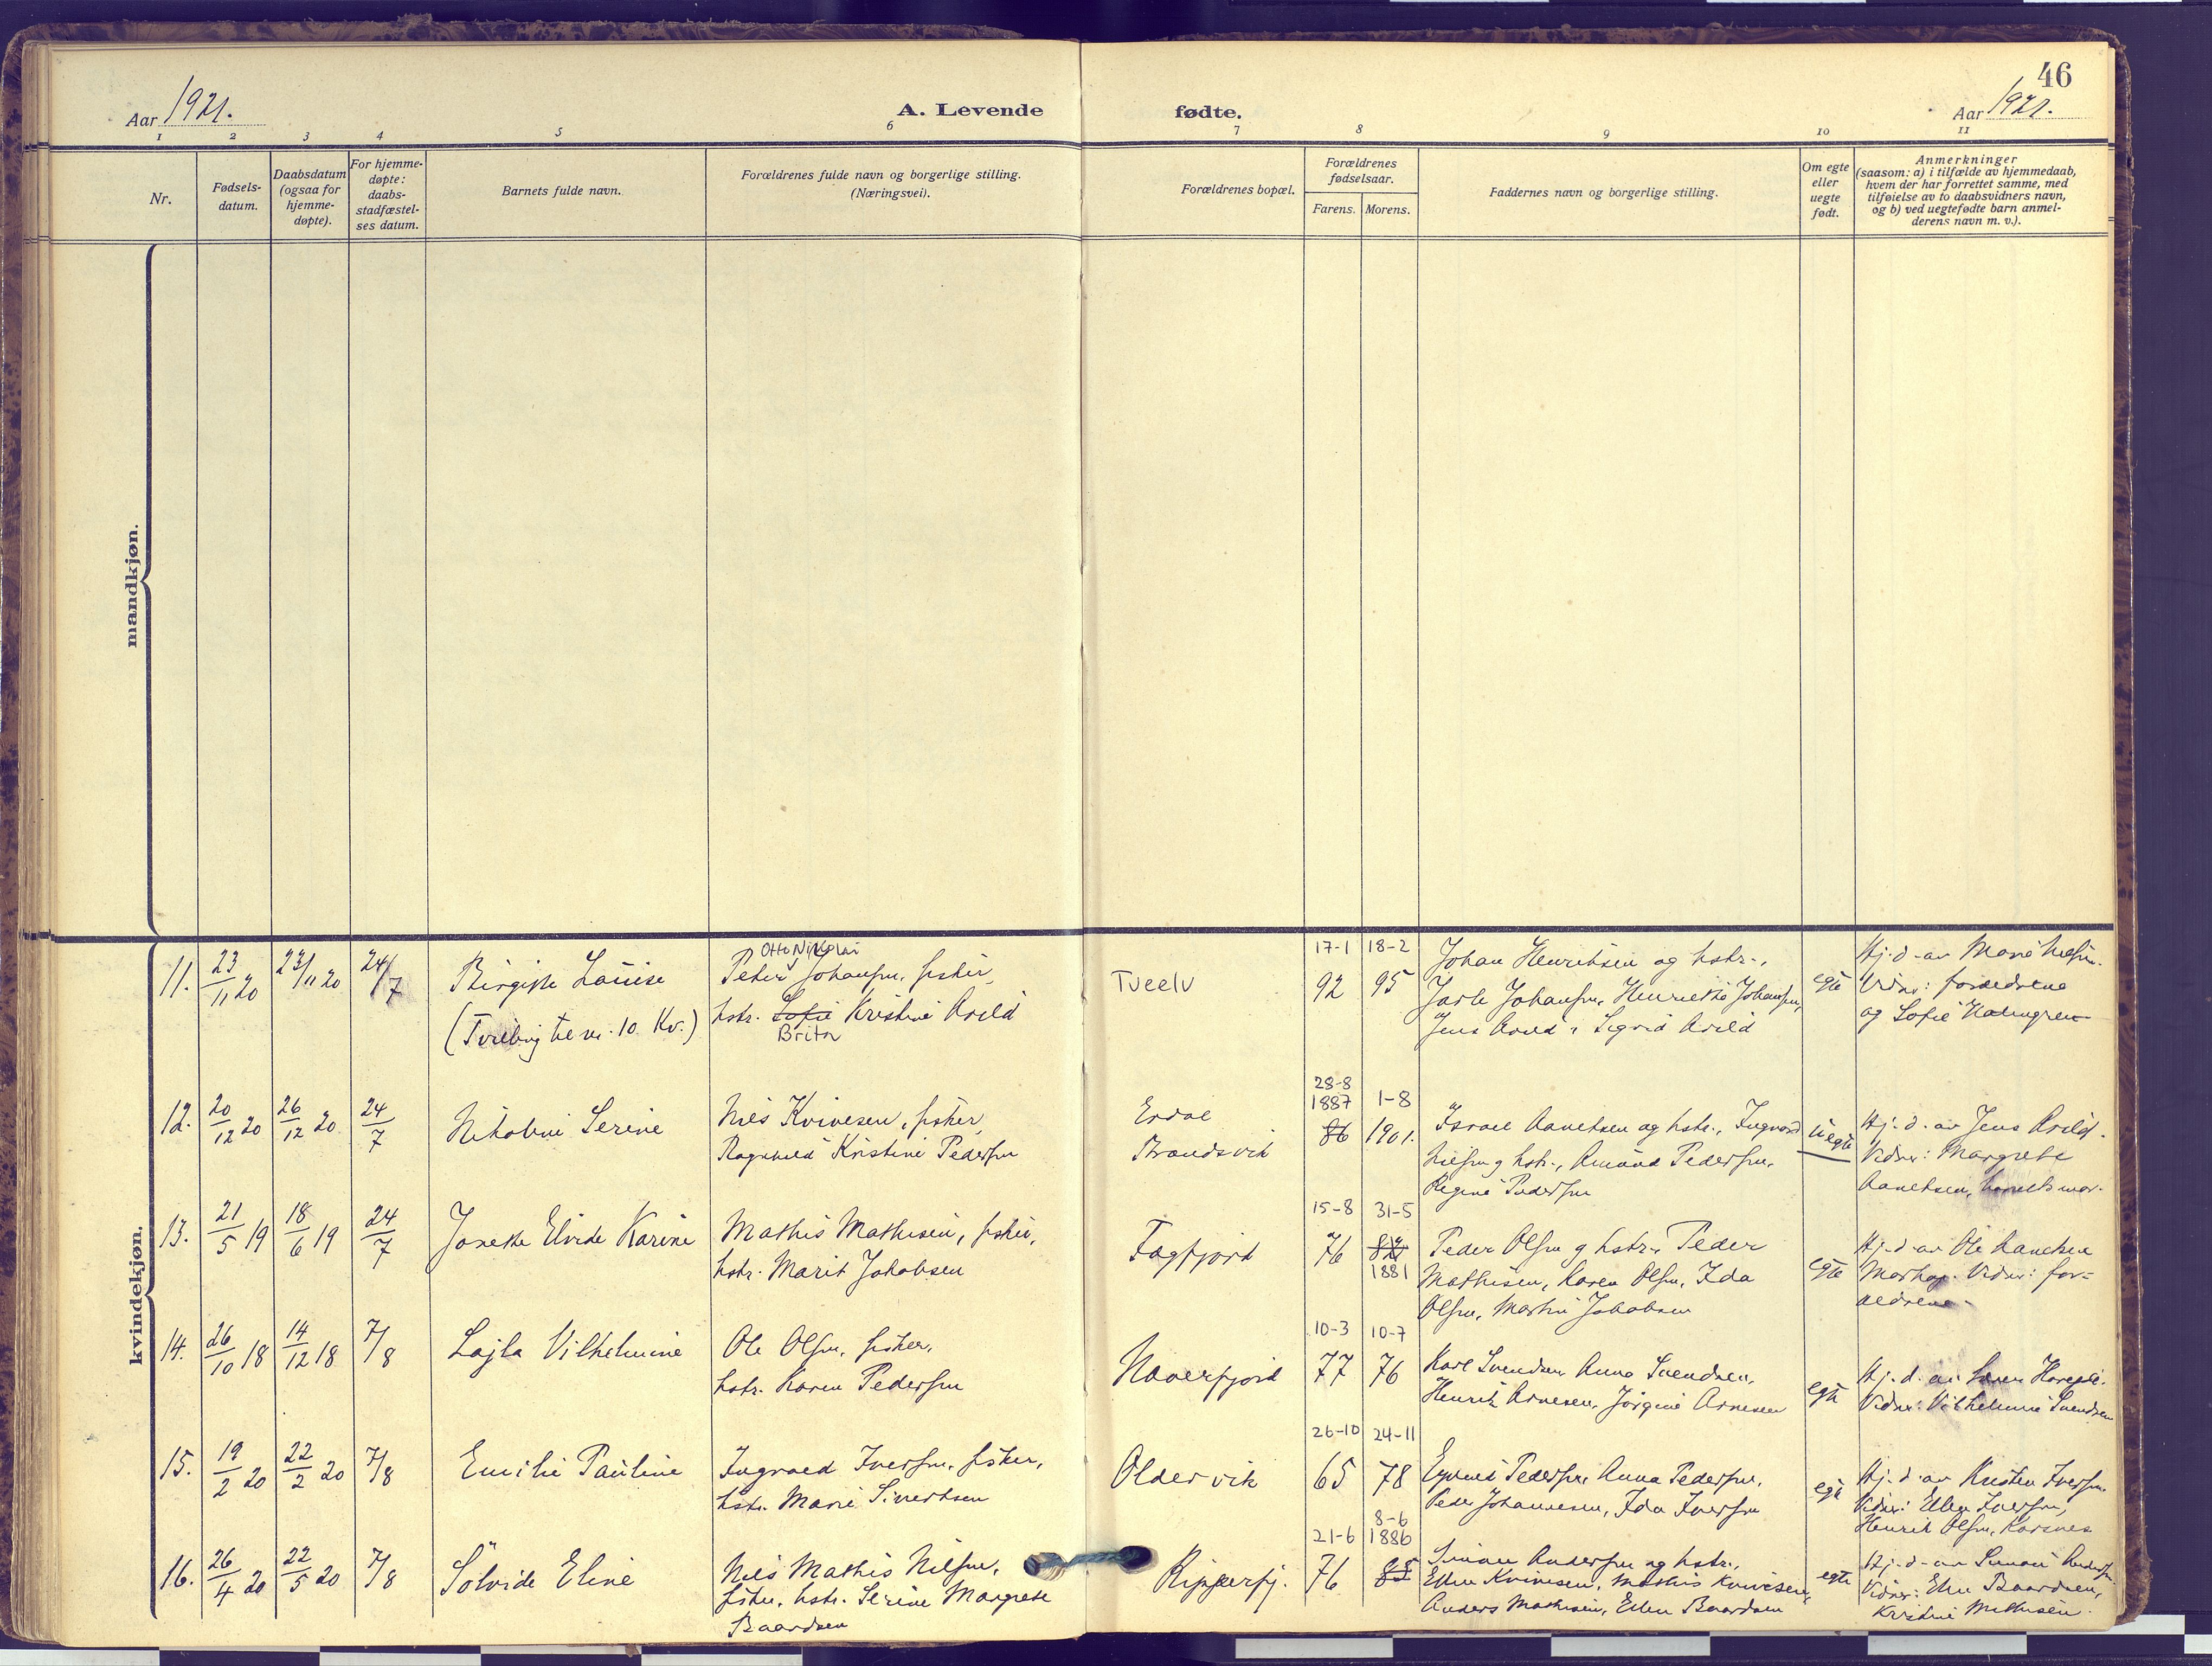 46
Aar 1921.
A. Levende fødte.
Aar 1921.
1 2 3 4 5 6 7 8 9 10 11
Nr.
Fødsels-
datum.
Daabsdatum
(ogsaa for
hjemme-
døpte).
For hjemme-
døpte:
daabs-
stadfæstel-
ses datum.
Barnets fulde navn.
Forældrenes fulde navn og borgerlige stilling.
(Næringsvei).
Forældrenes bopæl.
Forældrenes
fødselsaar.
Farens. Morens.
Faddernes navn og borgerlige stilling.
Om egte
eller
uegte
født.
Anmerkninger
(saasom: a) i tilfælde av hjemmedaab,
hvem der har forrettet samme, med
tilføielse av to daabsvidners navn,
og b) ved uegtefødte barn anmel-
derens navn m. v.).
mandkjøn.
kvindekjøn.
11. 23/11 20 23/11 20 24/7
Birgitte Louise
(Tvilling til nr. 10 Kv.)
Otto Nikolai
Peter Johansen, fisker,
hstr. Sofie Kristine Arild
Brita
Tveelv
17-1 18-2
92 95
Johan Henriksen og hstr.,
Jarle Johansen, Henriette Johansen,
Jens Arild, Sigrid Arild
egte
Hj. d. av Marie Nilsen.
Vidner: forældrene
og Sofie Malmgren
12. 20/12 20 26/12 20 24/7
Nikoline Serine
Nils Kvivesen, fisker,
Ragnhild Kristine Pedersen
Erdal
Brandsvik
28-8
1887 1-8
86 1901.
Israel Aanetsen og hstr., Ingvard
Nilsen og hstr., Amund Pedersen,
Regine Pedersen
uegte
Hj. d. av Jens Arild.
Vidner: Margrete
Aanetsen, barnets mor.
13. 21/5 19 18/6 19 24/7
Janette Elvide Karine
Mathis Mathisen, fisker,
hstr. Marit Jakobsen
Fægfjord
15-8 31-5
76
1881
Peder Olsen og hstr., Peder
Mathisen, Karen Olsen, Ida
Olsen, Martin Jakobsen
egte
Hj. d. av Ole Aanetsen
Marhop. Vidner: for-
ældrene.
14. 26/10 18 14/12 18 7/8
Lajla Vilhelmine
Ole Olsen, fisker,
hstr. Karen Pedersen
Naverfjord
10-3 10-7
77 76
Karl Svendsen, Anna Svendsen,
Henrik Arnesen, Jørgine Arnesen
egte
Hj. d. av
Vidner: Vilhelmine Svendsen
15. 19/2 20 22/2 20 7/8
Emilie Pauline
Ingvald Iversen, fisker,
hstr. Marie Sivertsen
Oldervik
26-10 24-11
65 78
Pedersen, Anna Pedersen,
Peder Johannesen, Ida Iversen
egte
Hj. d. av Kristen Iversen.
Vidner: Ellen Iversen,
Henrik Olsen, Korsnes
16. 26/4 20 22/5 20 7/8
Sølvide Eline
Nils Mathis Nilsen,
fisker, hstr. Serine Margrete
Baardsen
Ripperfj.
8-6
21-6 1886
76 85
Simon Andersen og hstr.,
Ellen Kvivesen, Mathis Kvivesen,
Anders Mathisen, Ellen Baardsen
egte
Hj. d. av Simon Andersen
Vidner: Ellen Baardsen,
Kristine Mathisen.